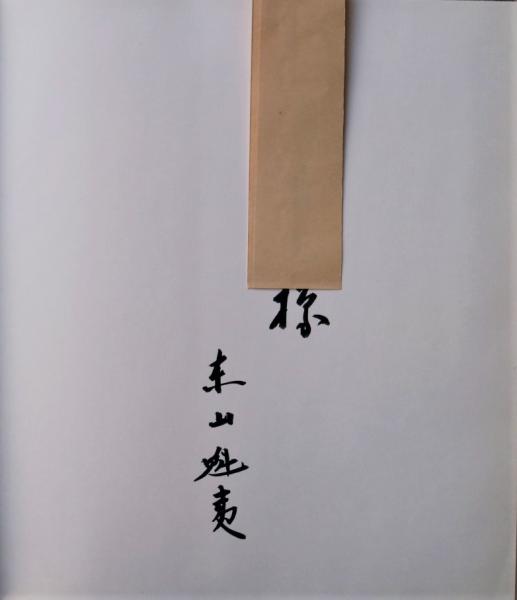 様
東山魁夷